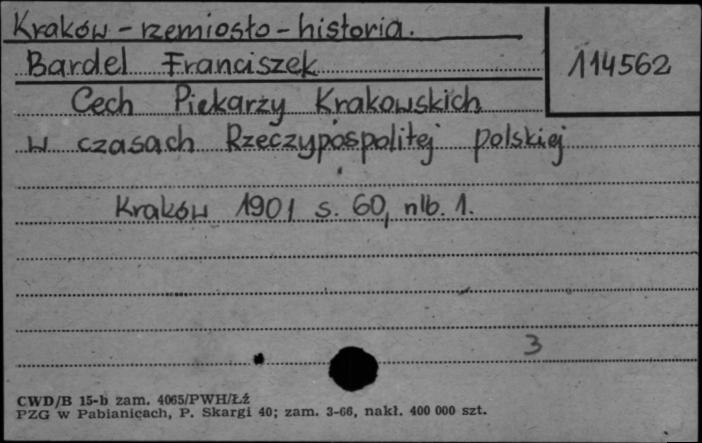 Kraków - rzemiosło - historia.
Bardel Franciszek
114562
Cech Piekarzy Krakowskich
w czasach Rzeczypospolitej polskiej
Kraków 1901 s. 60, nlb. 1.
3
CWD/B 15-b zam. 4065/PWH/Łź
PZG w Pabianicach, P. Skargi 40; zam. 3-66, nakł. 400 000 szt.